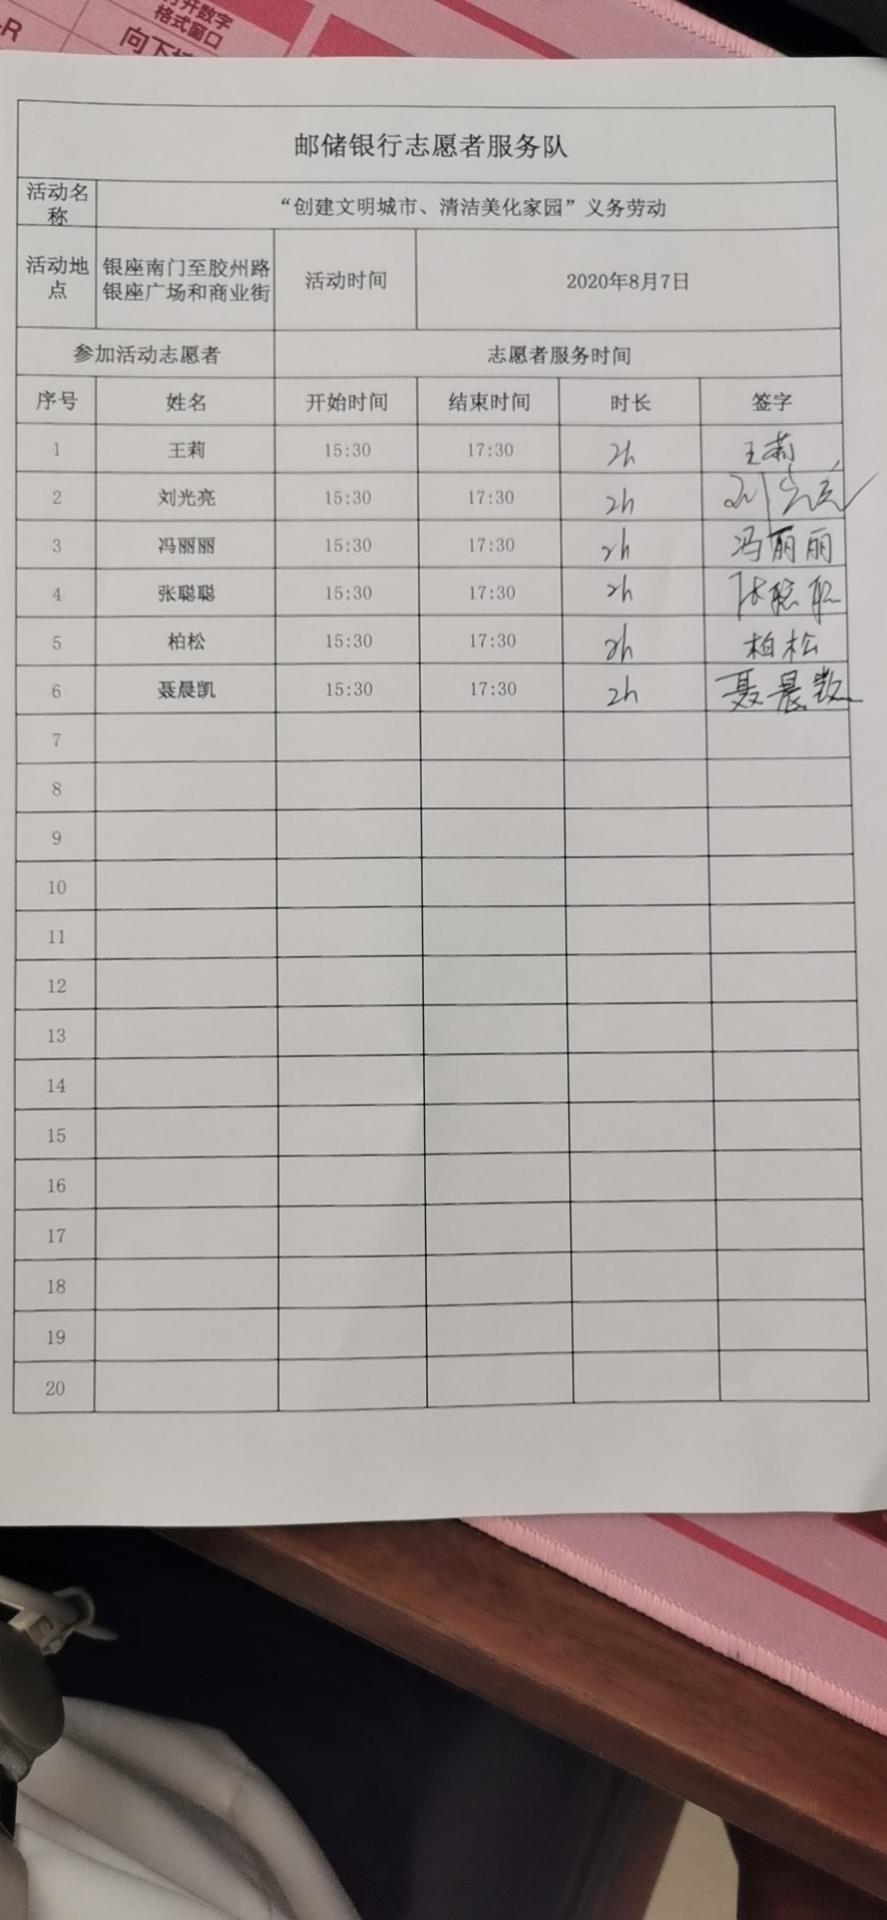 打开数字
格式窗口
-R
邮储银行志愿者服务队
活动名称
“创建文明城市、清洁美化家园”义务劳动
活动地点
银座南门至胶州路
银座广场和商业街
活动时间
2020年8月7日
参加活动志愿者 志愿者服务时间
序号 姓名 开始时间 结束时间 时长 签字
1 王莉 15:30 17:30 2h 王莉
2 刘光亮 15:30 17:30 2h 刘光亮
3 冯丽丽 15:30 17:30 2h 冯丽丽
4 张聪聪 15:30 17:30 2h 张聪聪
5 柏松 15:30 17:30 2h 柏松
6 聂晨凯 15:30 17:30 2h 聂晨凯
7
8
9
10
11
12
13
14
15
16
17
18
19
20